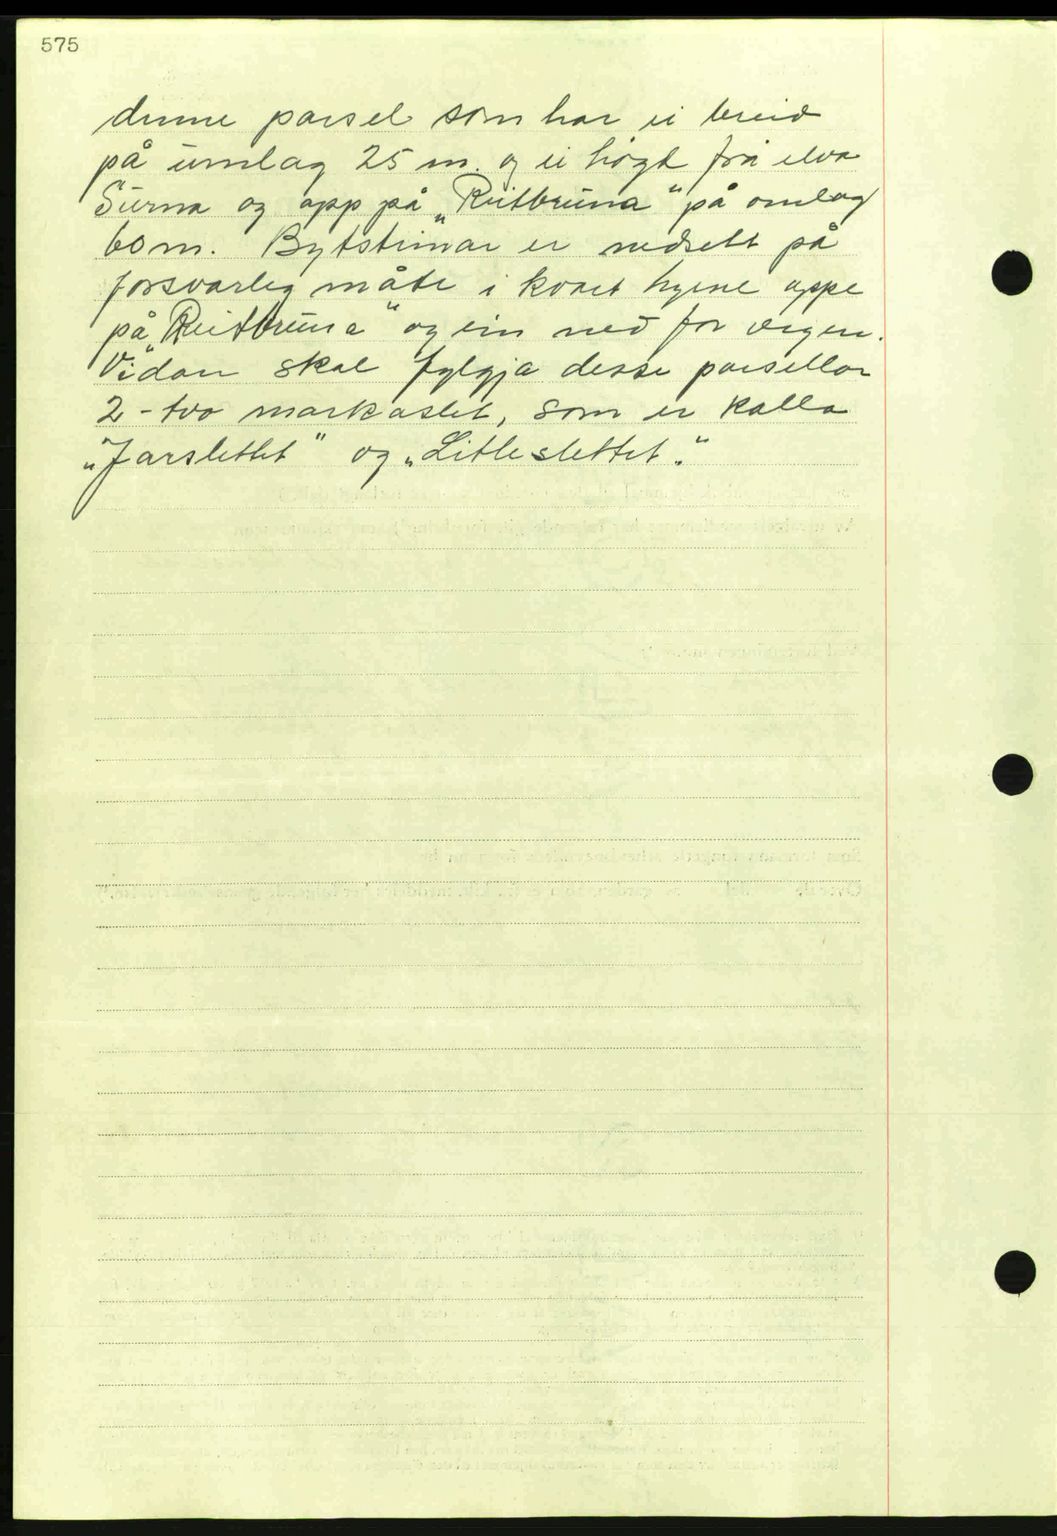 575
denne parsel som har ei breid
på umlag 25 m. og ei høgd frå elva
Surna og opp på „Reitbruna" på omlag
60 m. Bytsteinar er nedsett på
forsvarleg måte i kvart hyrne oppe
på „Reitbruna" og ein ned for vegen.
Vidare skal fylgja desse parsellar
2 - two markaslet, som er kalla
„Jarslettet" og „Litleslettet".